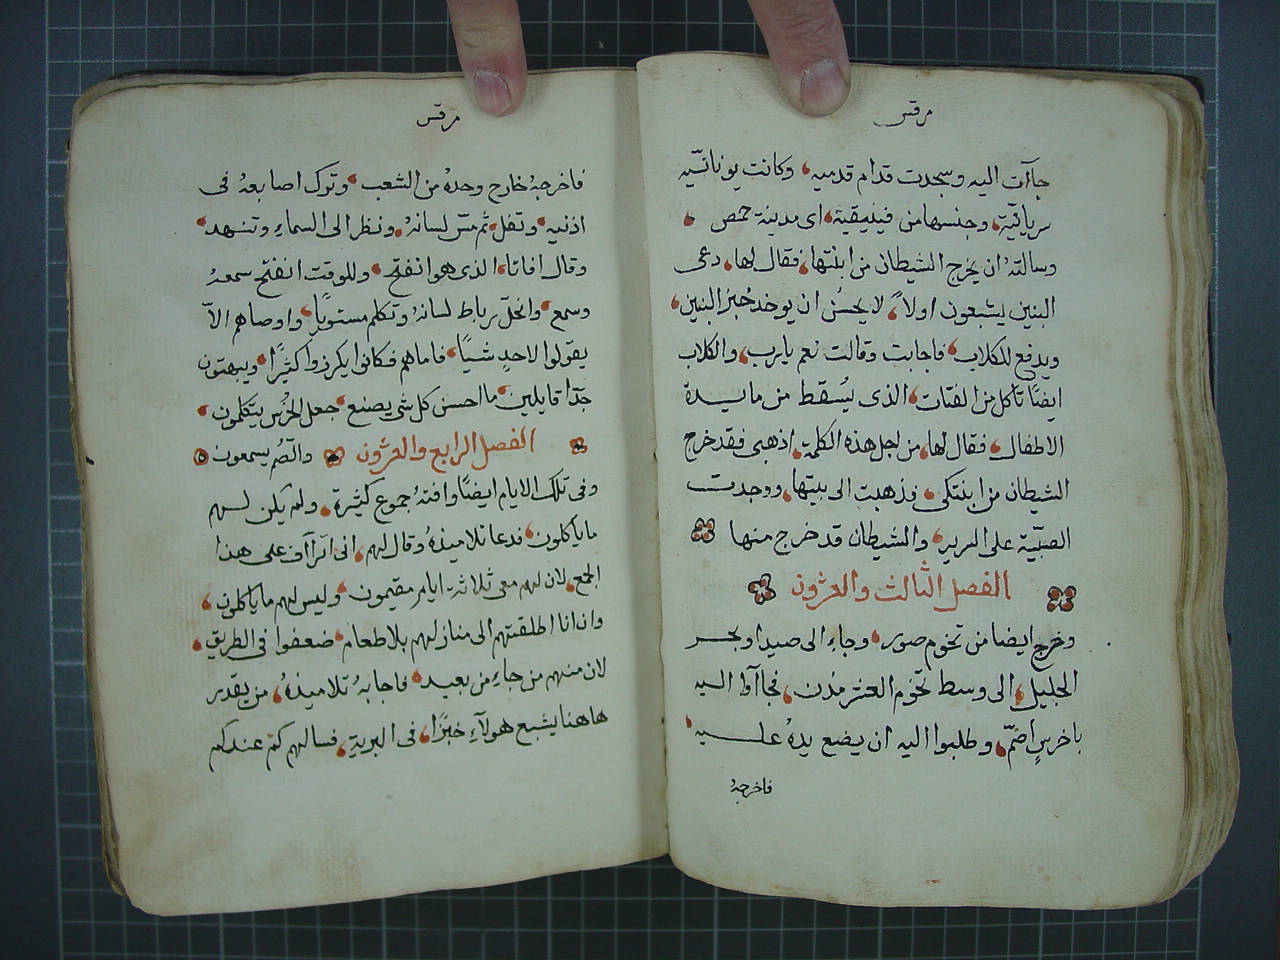 مرقس
جاآت اليه وسجدت قدام قدميه، وكانت يونانيّه
سريانيّة، وجنسها من فينيقية، اى مدينة حمص،
وسالته ان يخرج الشيطان من ابنتها، فقال لها، دعى
البنين يشبعون اولاً، لا يحسُن ان يوخد خبز البنين،
ويدفع للكلاب، فاجابت وقالت نعم يارب، والكلاب
ايضًا تاكل من الفتات، الذى يُسقط من مايدة
الاطفال، فقال لها، من اجل هذه الكلمة، اذهبى فقد خرج
الشيطان من ابنتكى، فذهبت الى بيتها، ووجدت
الصبيّة على السرير، والشيطان قد خرج منها
الفصل الثالث والعشرون
وخرج ايضا من تخوم صور، وجاء الى صيدا وبحر
الجليل، الى وسط تخوم العشر مُدن، فجاآوا اليه
باخرسٍ اصّم، وطلبوا اليه ان يضع يدهُ عليه،
فاخرجهُ
مرقس
فاخرجهُ خارج وحدهُ من الشعب، وترك اصابعهُ فى
اذنيه، وتفل، ثم مسّ لسانهُ، ونظر الى السماءِ وتنهد،
وقال افاتا، الذى هو انفتح، وللوقت انفتح سمعهُ
وسمع، وانحلّ رباط لسانهُ وتكلم مستويًا، واوصاهم الاّ
يقولوا لاحدٍ شيًا، فاما هم فكانوا يكرزوا كثيرًا، ويبهتون
جدًا قايلين، ما احسن كل شى يصنع، جعل الخرُس يتكلمون،
والصُم يسمعون
الفصل الرابع والعشرون
وفى تلك الايام ايضًا وافتهُ جموع كثيرة، ولم يكن لهم
ما ياكلون، فدعا تلاميذهُ وقال لهم، انى اتراآف على هذا
الجمع، لان لهم معى ثلاثة ايام مقيمون، وليس لهم ما ياكلون،
وان انا اطلقتهم الى منازلهم بلا طعام، ضعفوا فى الطريق،
لان منهم من جاء من بعيد، فاجابهُ تلاميذهُ، من يقدر
هاهنا يشبع هولآءِ خبزًا، فى البرية، فسالهم كم عندكم